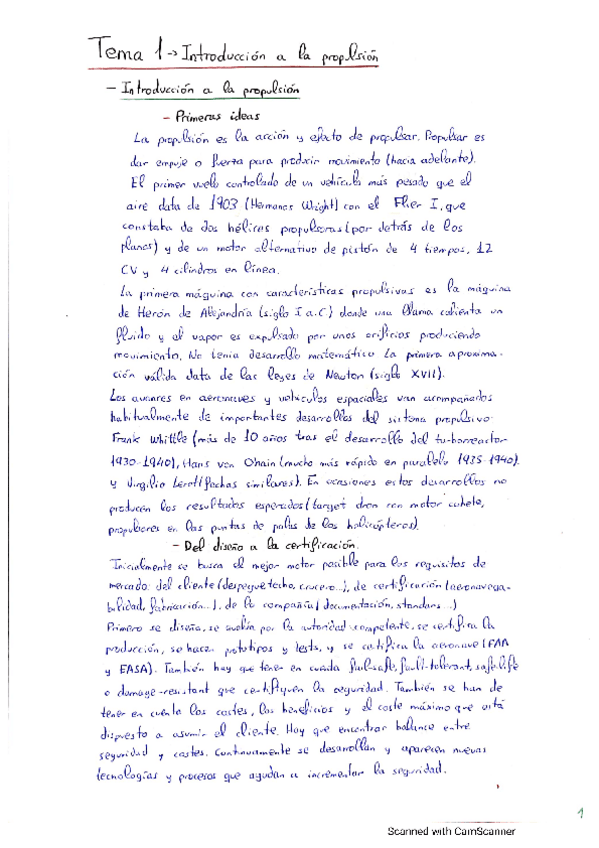 Tema 1 → Introducción a la propulsión
- Introducción a la propulsión
- Primeras ideas
La propulsión es la acción y efecto de propulsar. Propulsar es
dar empuje o fuerza para producir movimiento (hacia adelante).
El primer vuelo controlado de un vehículo más pesado que el
aire data de 1903 (Hermanos Wright) con el Flier I, que
constaba de dos hélices propulsoras (por detrás de los
planos) y de un motor alternativo de pistón de 4 tiempos, 12
CV y 4 cilindros en línea.
La primera máquina con características propulsivas es la máquina
de Herón de Alejandría (siglo I a.C) donde una llama calienta un
fluido y el vapor es expulsado por unos orificios produciendo
movimiento. No tenía desarrollo matemático. La primera aproxima-
ción válida data de las leyes de Newton (siglo XVII).
Los avances en aeronaves y vehículos espaciales van acompañados
habitualmente de importantes desarrollos del sistema propulsivo:
Frank Whittle (más de 10 años tras el desarrollo del turborreactor
1930-1940), Hans von Ohain (mucho más rápido en paralelo 1935-1940)
y Virgilio Leret (fechas similares). En ocasiones estos desarrollos no
producen los resultados esperados (target dron con motor cohete,
propulsores en las puntas de palas de los helicópteros).
- Del diseño a la certificación
Inicialmente se busca el mejor motor posible para los requisitos de
mercado: del cliente (despegue, techo, crucero...), de certificación (aeronavega-
bilidad, fabricación...), de la compañía (documentación, standars...)
Primero se diseña, se evalúa por la autoridad competente, se certifica la
producción, se hacen prototipos y tests, y se certifica la aeronave (FAA
y EASA). También hay que tener en cuenta fail-safe, fault-tolerant, safe-life
o damage-resistant que certifiquen la seguridad. También se han de
tener en cuenta los costes, los beneficios y el coste máximo que está
dispuesto a asumir el cliente. Hay que encontrar balance entre
seguridad y costes. Continuamente se desarrollan y aparecen nuevas
tecnologías y procesos que ayudan a incrementar la seguridad.
1
Scanned with CamScanner